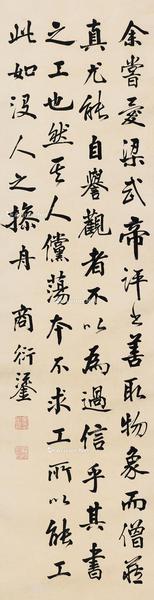 余尝爱梁武帝评书善取物象而僧藏
真尤能自誉观者不以為過信乎其書
之工也然其人儻蕩本不求工所以能工
此如没人之操舟
商衍鎏